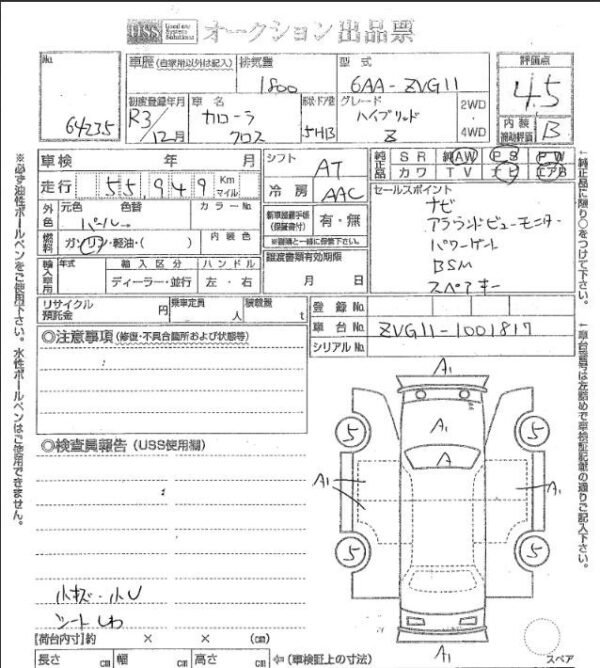 USS Used car System Solutions オークション出品票
No. 64235
車歴(自家用以外は記入) 排気量 1800 型式 6AA-ZVG11
評価点 4.5
初度登録年月 R3/12月 車名 カローラ クロス 形状・ドア数 5HB グレード ハイブリッド Z 2WD・4WD
内装 補助評価 B
車検 年 月
走行 55,949 Km マイル
シフト AT
冷房 AAC
純正品 SR 純AW PS PW
カワ TV ナビ エアB
外色 元色 色替 カラーNo.
パール→
燃料 ガソリン・軽油・( ) 内装色
新車整備手帳(保証書付) 有・無
※車両と一緒に保管下さい。
セールスポイント
ナビ
アラウンドビューモニター
パワーゲート
BSM
スペアキー
輸入車用 年式 輸入区分 ハンドル
ディーラー・並行 左・右
譲渡書類有効期限
月 日
リサイクル預託金 円 乗車定員 人 積載量 t
登録No.
車台No. ZVG11-1001817
シリアルNo.
◎注意事項(修復・不具合箇所および状態等)
◎検査員報告(USS使用欄)
小キズ・小U
シートしわ
A1
A1
A1
A
5
5
A1
A1
5
5
A1
スペア
【荷台内寸】約 × × (cm)
長さ cm 幅 cm 高さ cm ⇦(車検証上の寸法)
※必ず油性ボールペンをご使用下さい。水性ボールペンはご使用できません。
←純正品に限り○をつけて下さい。
←車台番号は左詰めで車検証記載の通りご記入下さい。